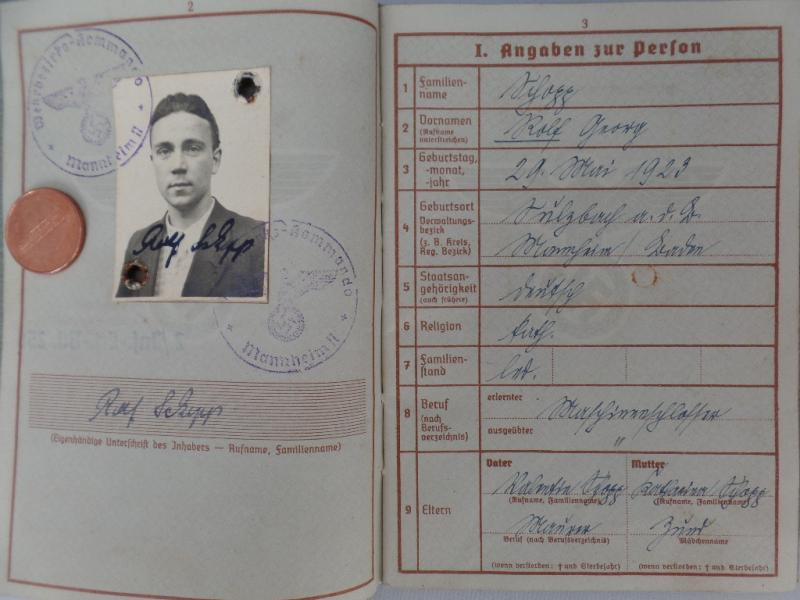 2
Wehrbezirks-Kommando
Mannheim II
Rolf Schopp
Mannheim II
Rolf Schopp
(Eigenhändige Unterschrift des Inhabers — Rufname, Familienname)
3
I. Angaben zur Person
1 Familien-name Schopp
2 Vornamen (Rufname unterstreichen) Rolf Georg
3 Geburtstag, -monat, -jahr 29. Mai 1923
4 Geburtsort Sulzbach a. d. B.
Verwaltungs-bezirk (z. B. Kreis, Reg. Bezirk) Mannheim / Baden
5 Staatsan-gehörigkeit (auch frühere) deutsch
6 Religion kath.
7 Familien-stand led.
8 Beruf (nach Berufs-verzeichnis) erlernter Maschinenschlosser
ausgeübter "
9 Eltern
Vater Mutter
Valentin Schopp Katharina Schopp
(Rufname, Familienname) (Rufname, Familienname)
Maurer
Beruf (nach Berufsverzeichnis) Mädchenname
(wenn verstorben: † und Sterbejahr) (wenn verstorben: † und Sterbejahr)